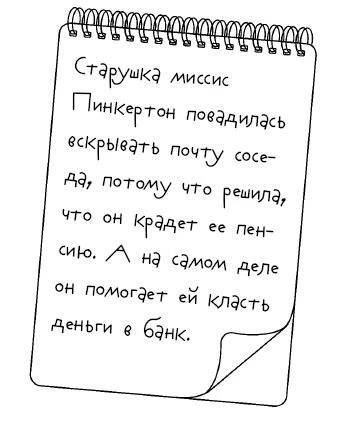 Старушка миссис
Пинкертон повадилась
вскрывать почту сосе-
да, потому что решила,
что он крадет ее пен-
сию. А на самом деле
он помогает ей класть
деньги в банк.